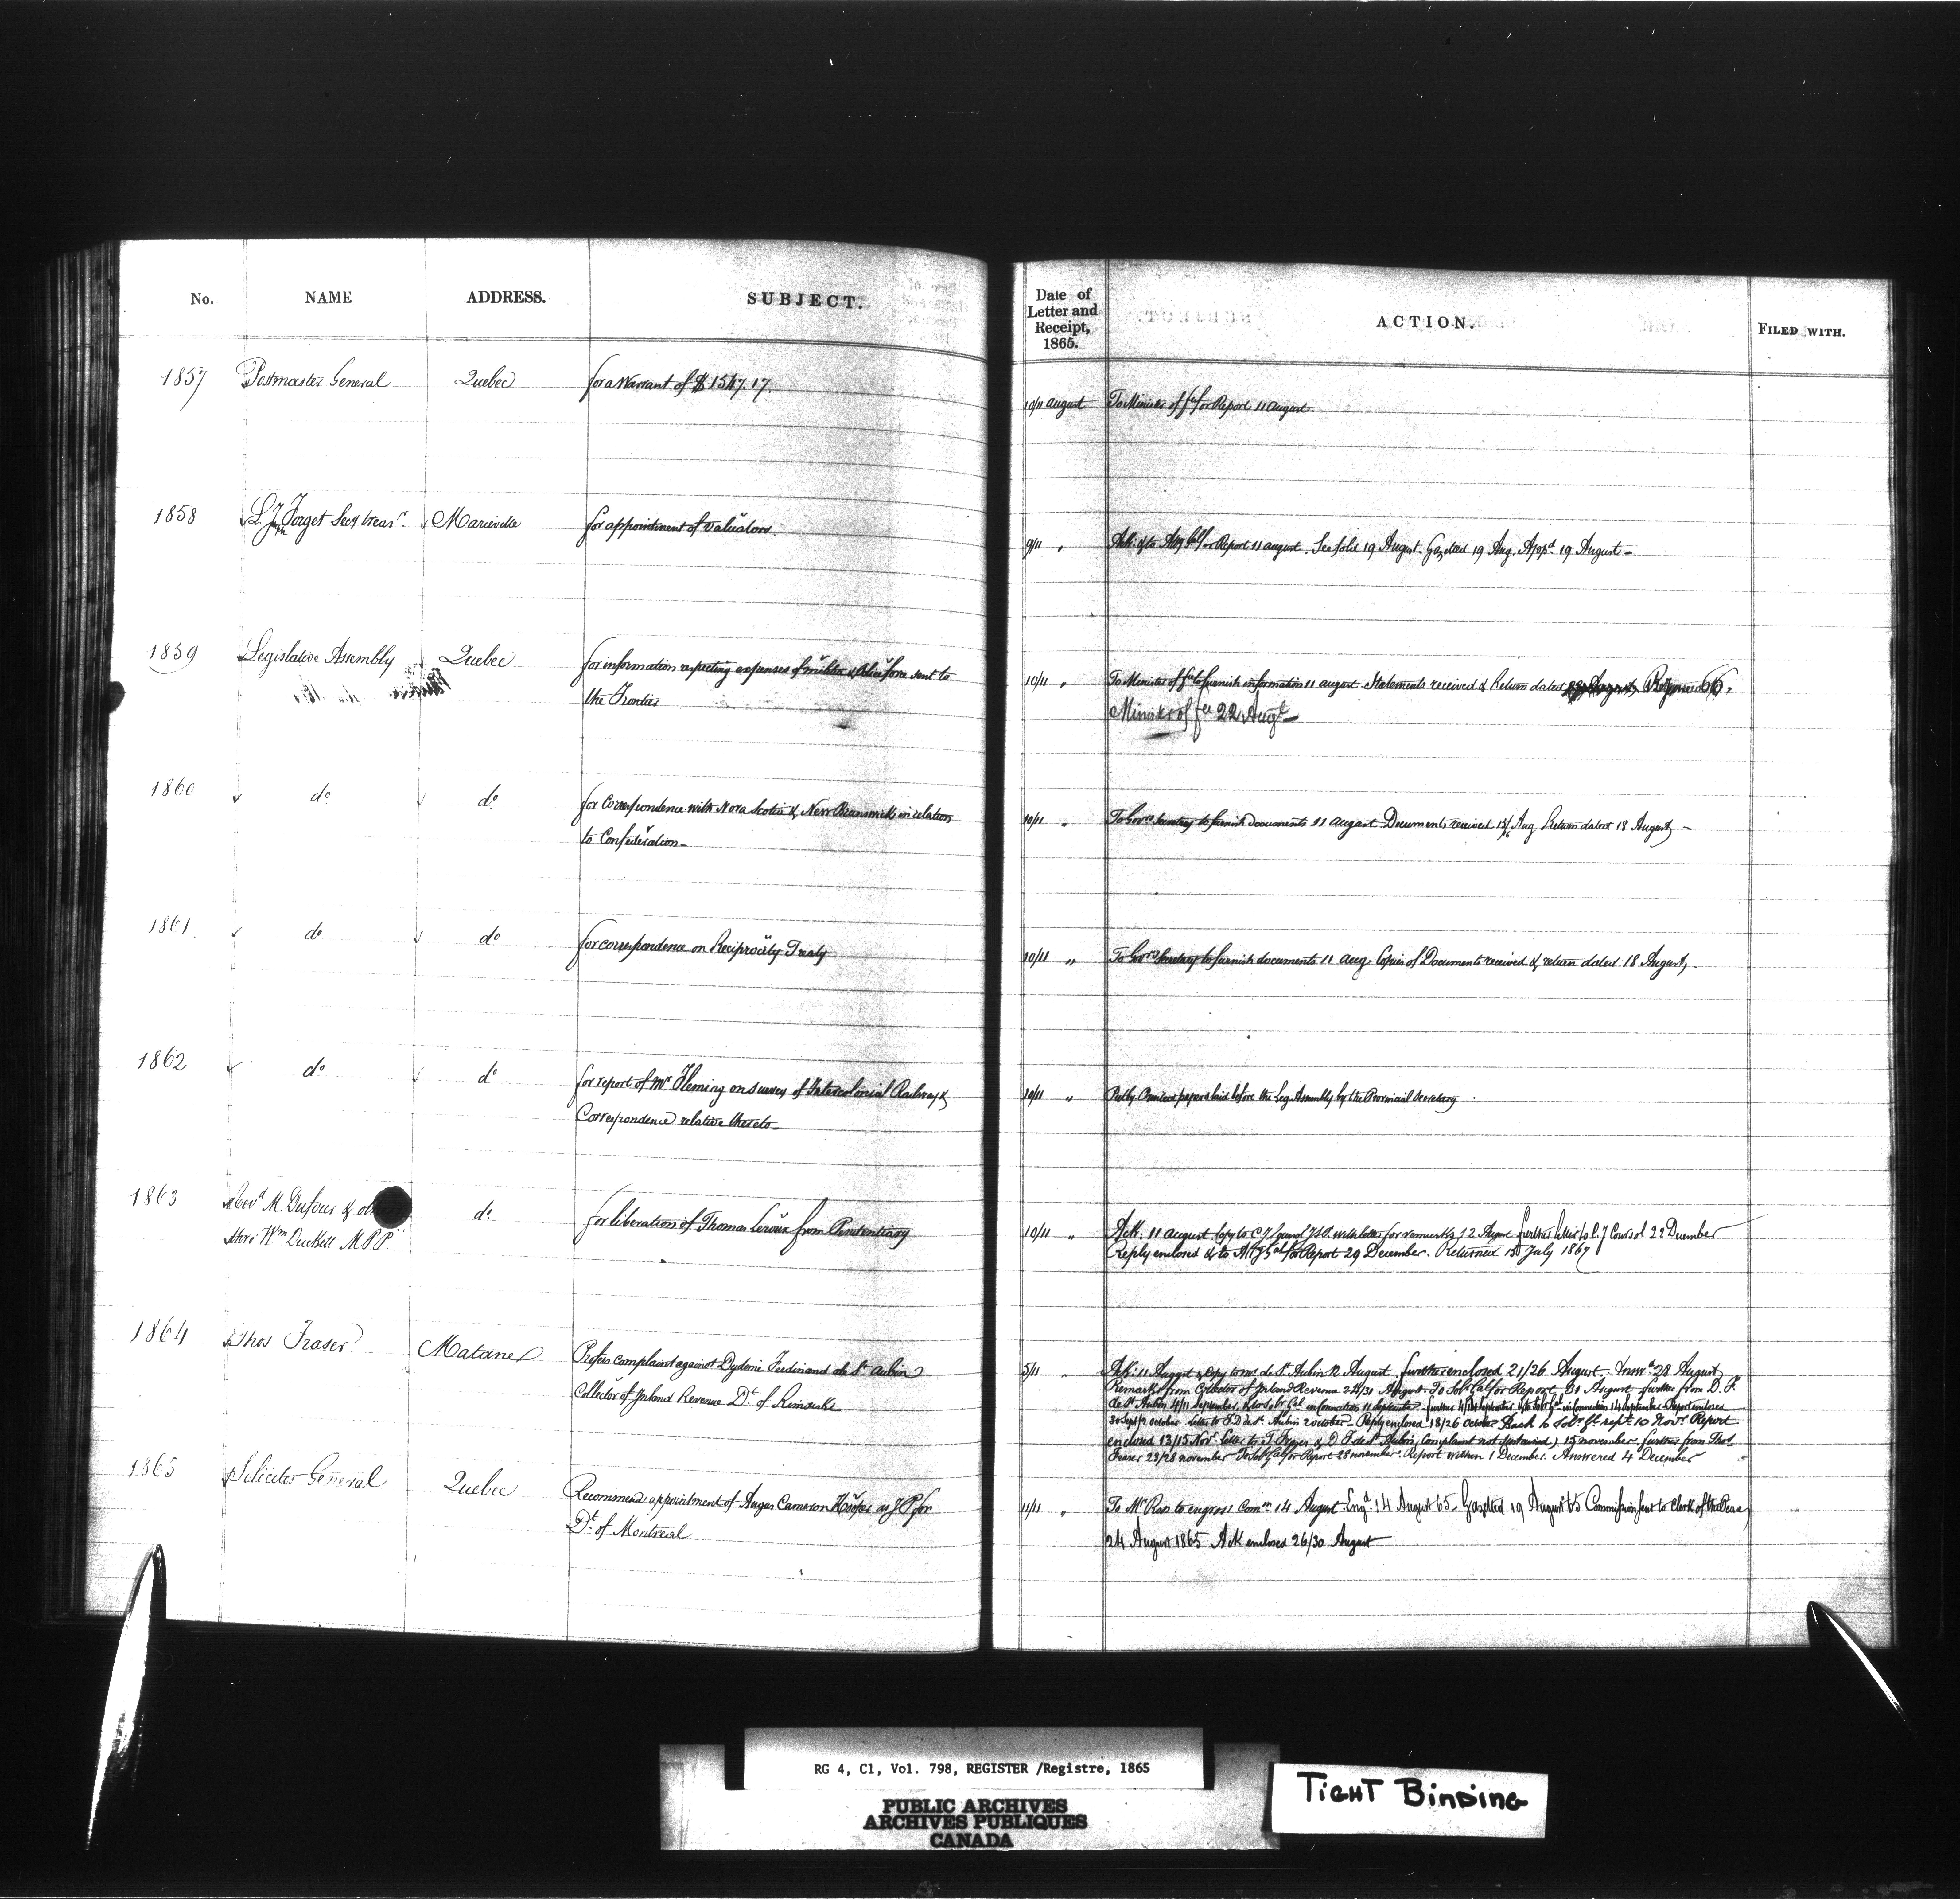 No. NAME ADDRESS. SUBJECT. Date of Letter and Receipt, 1865. ACTION. FILED WITH.
1857 Postmaster General Quebec for a Warrant of $1547.17.
10/11 august To Minister of fce for Report 11 august
1858 Forget Secy treasr. Marieville for appointment of valuators.
9/11 " Ack: & to Atty Gal for Report 11 august. See folio 19 August. Gazetted 19 Aug. Appd. 19 August -
1859 Legislative Assembly Quebec for information respecting expenses of militia & Police force sent to
the Frontier
10/11 " To Minister of fce to furnish information 11 august. Statements received & Return dated
Minister of fce 22 Augt -
1860 do do for Correspondence with Nova Scotia & New Brunswick in relation
to Confederation -
10/11 " To Govrs Secretary to furnish documents 11 august Documents received Aug. Return dated 18 August -
1861 do do for correspondence on Reciprocity Treaty
10/11 " To Govrs Secretary to furnish documents 11 aug. Copies of Documents received & return dated 18 August -
1862 do do for report of Mr Fleming on survey of Intercolonial Railway &
Correspondence relative thereto -
10/11 " papers laid before the Leg. Assembly by the Provincial Secretary
1863 Revd M. Dufour & do for liberation of Thomas Leroux from Penitentiary
thro' Wm Duckett M.P.P.
10/11 " Ack: 11 august Copy to with letter for remarks 12 August further letter to C. J Coursol 22 December
Reply enclosed & to Atty Gal for Report 29 December. Returned 15 July 1867
1864 Thos Fraser Matane Prefers complaint against Dydime Ferdinand de St Aubin
Collector of Inland Revenue Dt. of Rimouski
5/11 " Ack: 11 August & Copy to Mr de St Aubin 12 August. further enclosed 21/26 August. 28 August
Remarks from Collector of Inland Revenue 24/31 August. To Solr Gal for Report 31 August. further from D. F.
de St Aubin 4/11 September, & to Solr Gal in connection 11 September
October letter to F. D de St. Aubin 2 october. Reply enclosed 18/26 October Back to Solr Gl 10 Novr Report
enclosed 13/15 Novr. Letter to T. Fraser & D F de St Aubin (Complaint not sustained) 15 november. further from Thos
Fraser 23/28 november To Solr Gal for Report 28 november. Report written 1 December. Answered 4 December
1865 Solicitor General Quebec Recommends appointment of Angus Cameron as J P for
Dt. of Montreal
11/11 " To Mr Ross to engross Comn 14 August. Engd. 14 August 65. Gazetted 19 August 65 Commission sent to Clerk of the Peace
24 August 1865 Ack enclosed 26/30 August
RG 4, C1, Vol. 798, REGISTER /Registre, 1865
PUBLIC ARCHIVES
ARCHIVES PUBLIQUES
CANADA
TIGHT BINDING